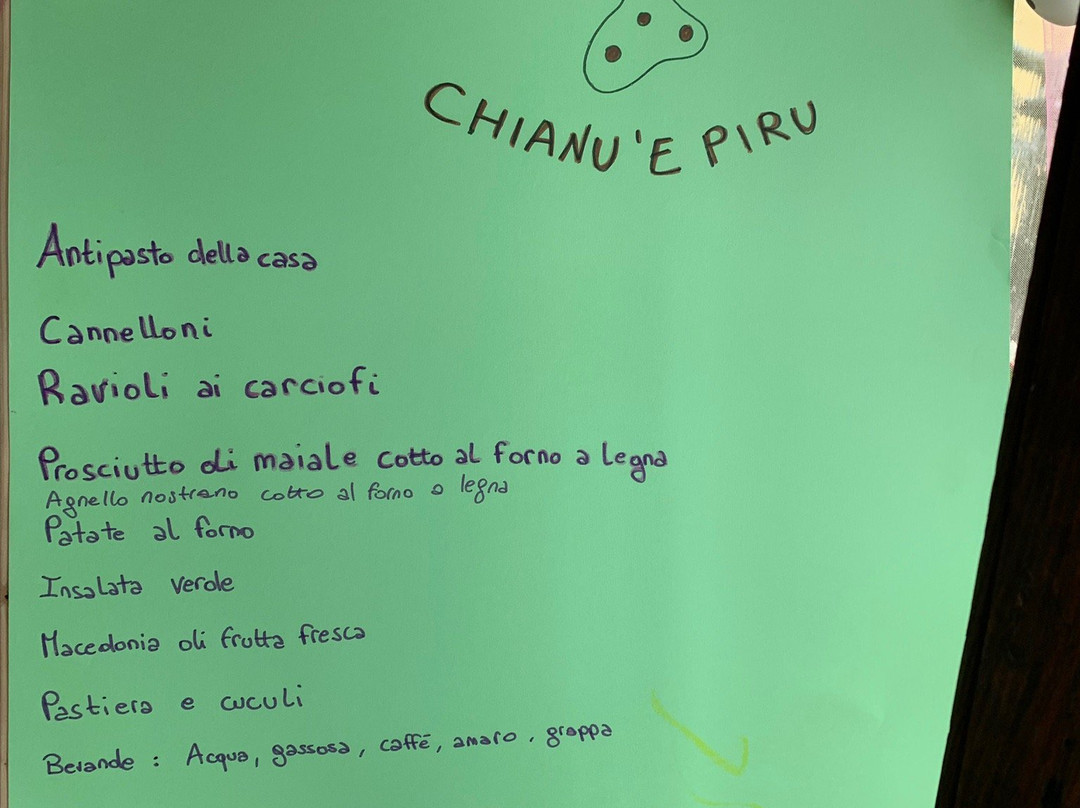 CHIANU'E PIRU
Antipasto della casa
Cannelloni
Ravioli ai carciofi
Prosciutto di maiale cotto al forno a legna
Agnello nostrano cotto al forno a legna
Patate al forno
Insalata verde
Macedonia di frutta fresca
Pastiera e cuculi
Bevande : Acqua, gassosa, caffē, amaro, grappa